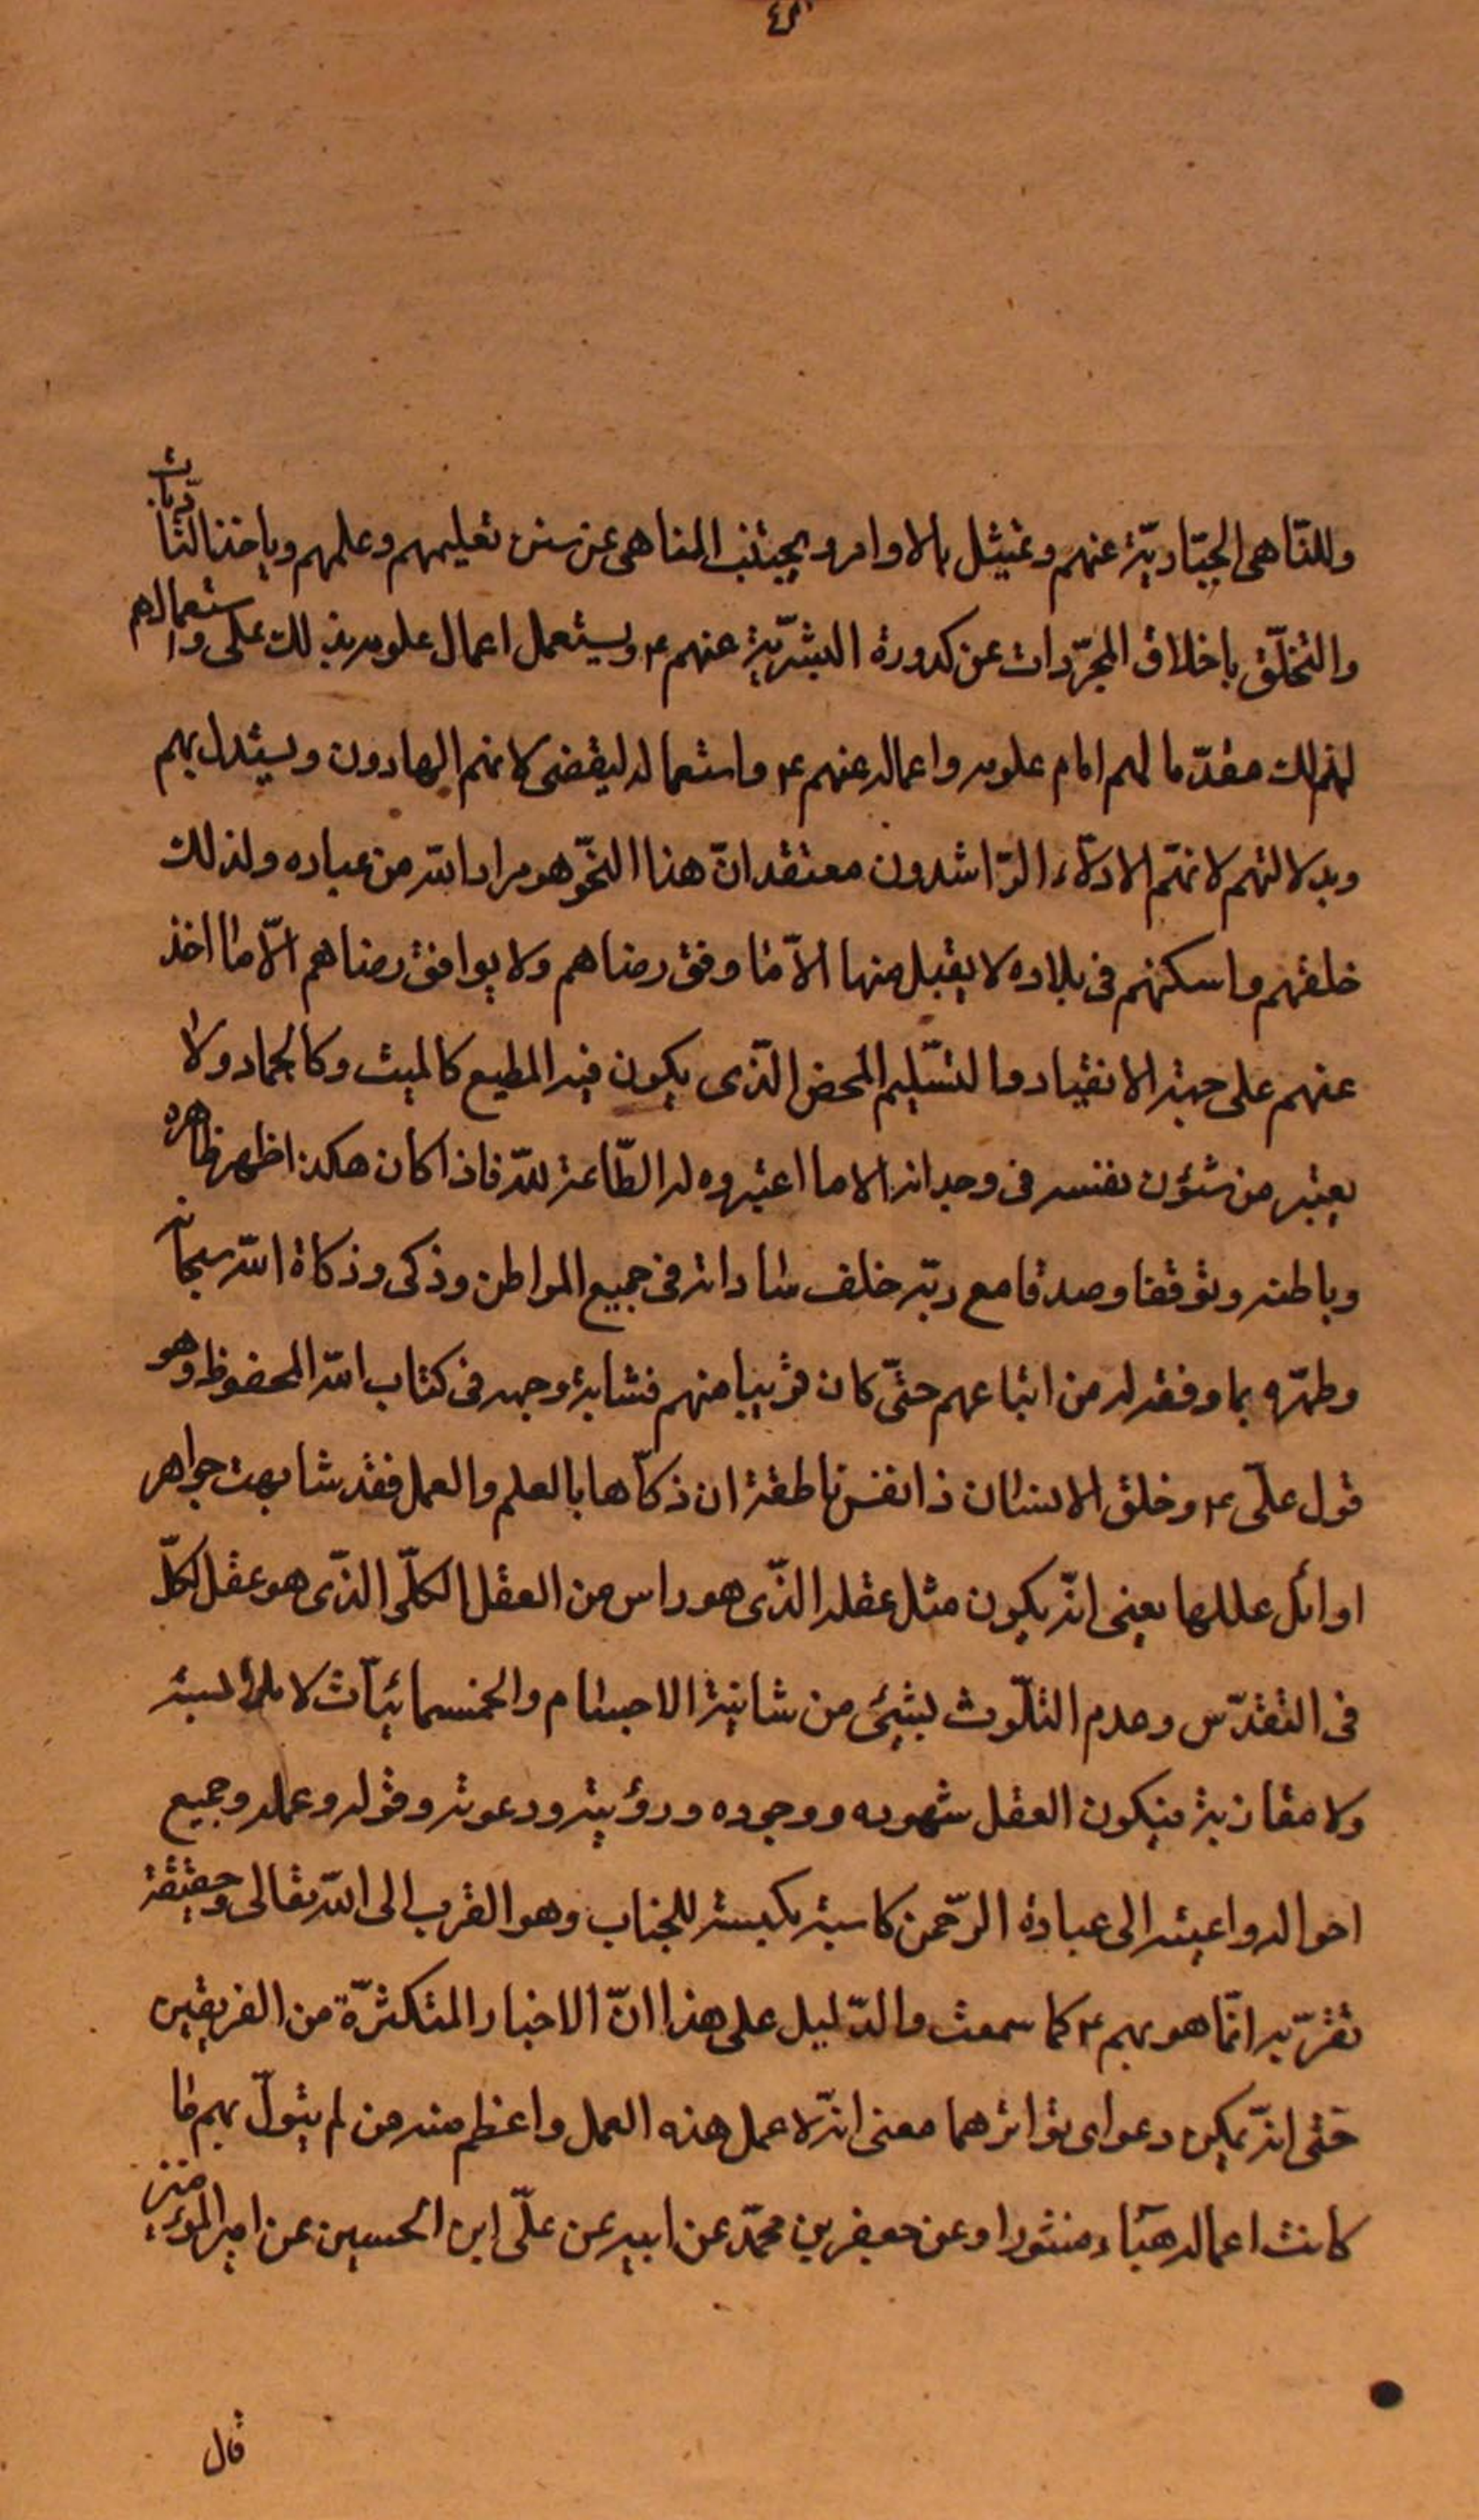 وللنّاهى الجبّاديّة عنهم وعتيثل بالاوامر ويجيتنب المناهى عن سنن تعليمهم وعلمهم وياخذ التّاديات
والتخلّق باخلاق المجرّدات عن كدورة البشريّة عنهم ع ويستعمل اعمال علومه بذلك على واستعمالهم
لذلك مقدّما لهم امام علومه واعماله عنهم ع واستعماله ليقضى لانهم الهادون ويستدل بهم
وبدلالتهم لانهّم الادلّاء الرّاشدون معتقدا انّ هذا النحّو هو مراد الله من عباده ولذلك
خلقهم واسكنهم فى بلاده لا يقبل منها الّا ما وفق رضاهم ولا يوافق رضاهم الّا ما اخذ
عنهم على جهة الانقياد والتسّليم المحض الذّى يكون فيه المطيع كالميت وكالجماد ولا
يعتبر من شئون نفسه فى وجدانه الا ما اعتبروه له الطّاعة للّه فاذا كان هكذا ظهر ظاهره
وباطنه وتوقفا وصدقا مع ربّه خلف ساداته فى جميع المواطن وذكى وذكاة الله سبحانه
وطهّره بما وفقه له من اتباعهم حتّى كان قريبا منهم فشابه وجهه فى كتاب الله المحفوظ وهو
قول علىّ ع وخلق الانسان ذا نفس ناطقة ان ذكّاها بالعلم والعمل فقد شابهت جواهر
اوائل عللها يعنى انّه يكون مثل عقله الذّى هو راس من العقل الكلّى الذّى هو عقل الكلّ
فى التقدّس وعدم التلّوث بشئ من شانية الاجسام والجسمانيّات لا ملابسة
ولا مقارنة فيكون العقل شهوده ووجوده ورؤيته ودعوته وقوله وعمله وجميع
احواله واعيته الى عبادة الرّحمن كاسبة بكيسة للجناب وهو القرب الى الله تعالى وحقيقة
تقرّبه انّما هو بهم ع كما سمعت والدّليل على هذا انّ الاخبار المتكثّرة من الفريقين
حتى انّه يمكن دعواى تواترهما معنى انّه لا عمل هذه العمل واعظم منه من لم يتولّ بهم ما
كانت اعماله هبآء منثورا وعن جعفر بن محمّد عن ابيه عن علىّ ابن الحسين عن امير المؤمنين
قال